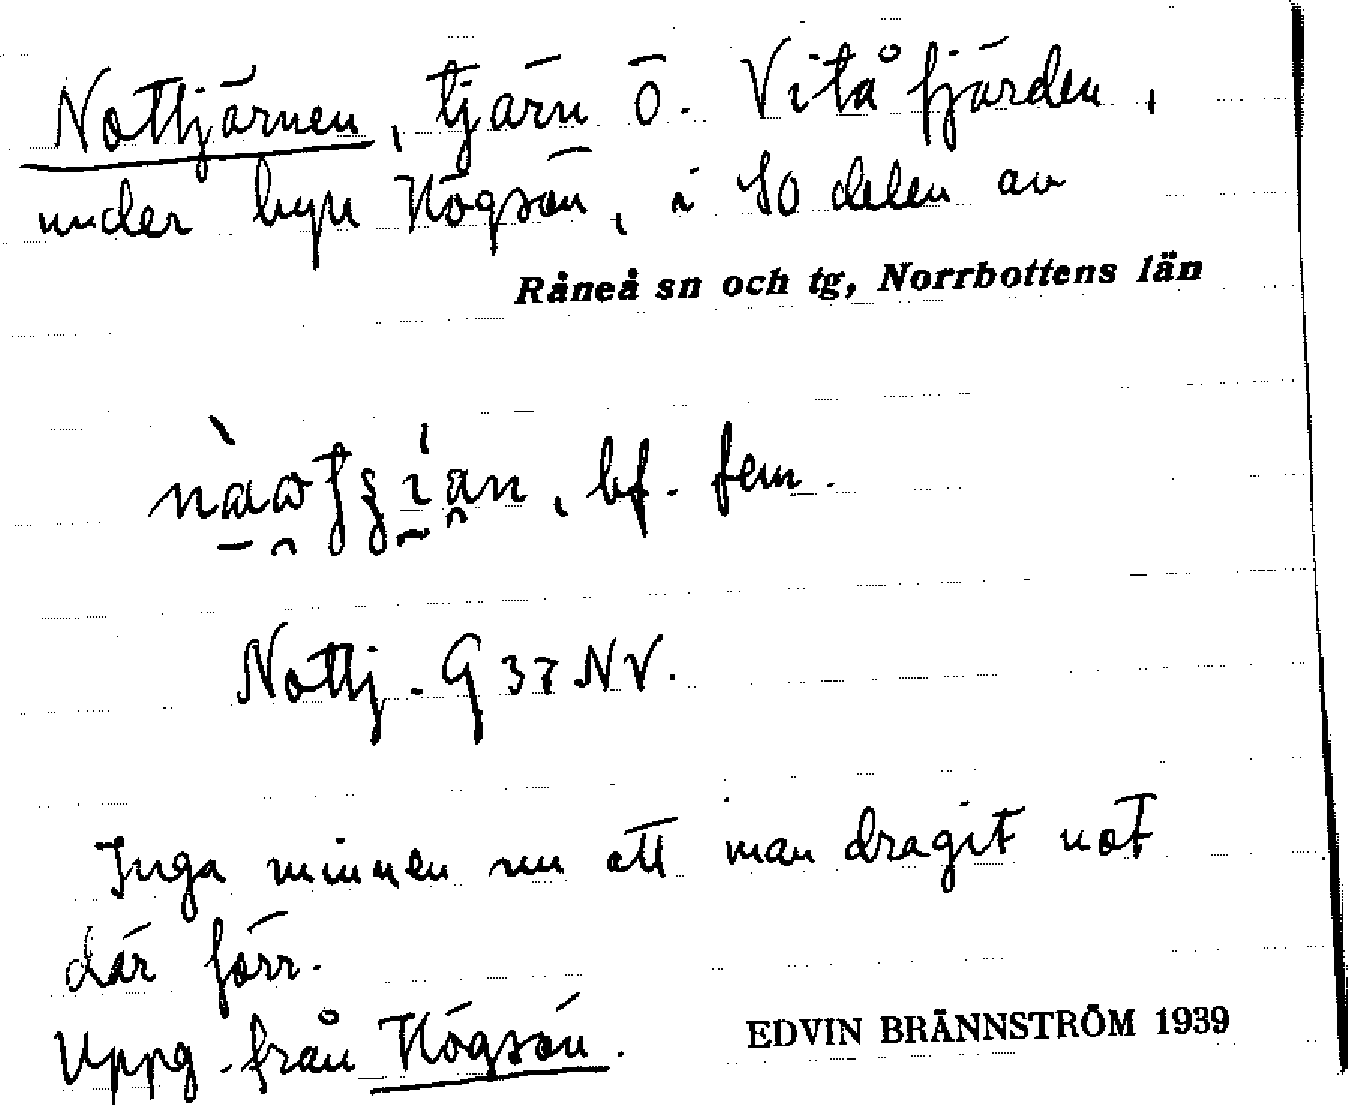 Nottjärnen, tjärn ö. Vitåfjärden,
under byn Högsön, i SO delen av
Råneå sn och tg, Norrbottens län
bf. fem.
Nottj. G 37 NV.
Inga minnen nu att man dragit not
där förr.
Uppg. från Högsön.
EDVIN BRÄNNSTRÖM 1939